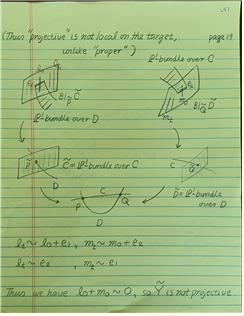 (Thus "projective" is not local on the target,
unlike "proper")
page 19
ℙ¹-bundle over C
Bl_P̃ C̃
Bl_Q̃ D̃
m₀
m_t
ℙ¹-bundle over D
C̃ = ℙ¹-bundle over C
P̃
D
C
D̃ = ℙ¹-bundle over D
P
C
Q
D
l_t ~ l₀ + e₁ , m_t ~ m₀ + e₂
l_t ~ e₂ , m_t ~ e₁
Thus we have l₀ + m₀ ~ 0, so Ỹ is not projective